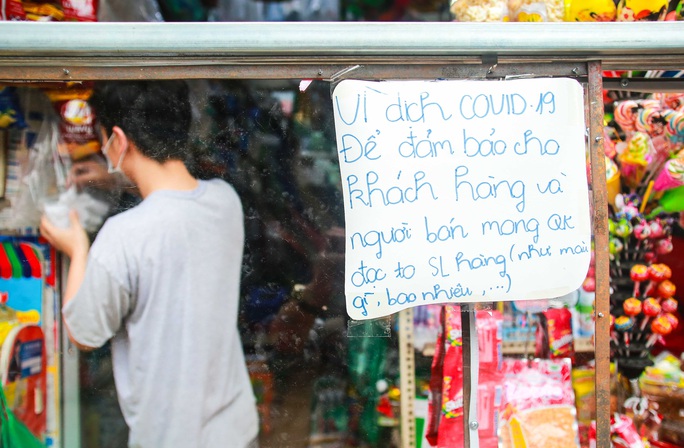 Vì dịch COVID.19
Để đảm bảo cho
khách hàng và
người bán mong QK
đọc to SL hàng (như mua
gì, bao nhiêu,...)